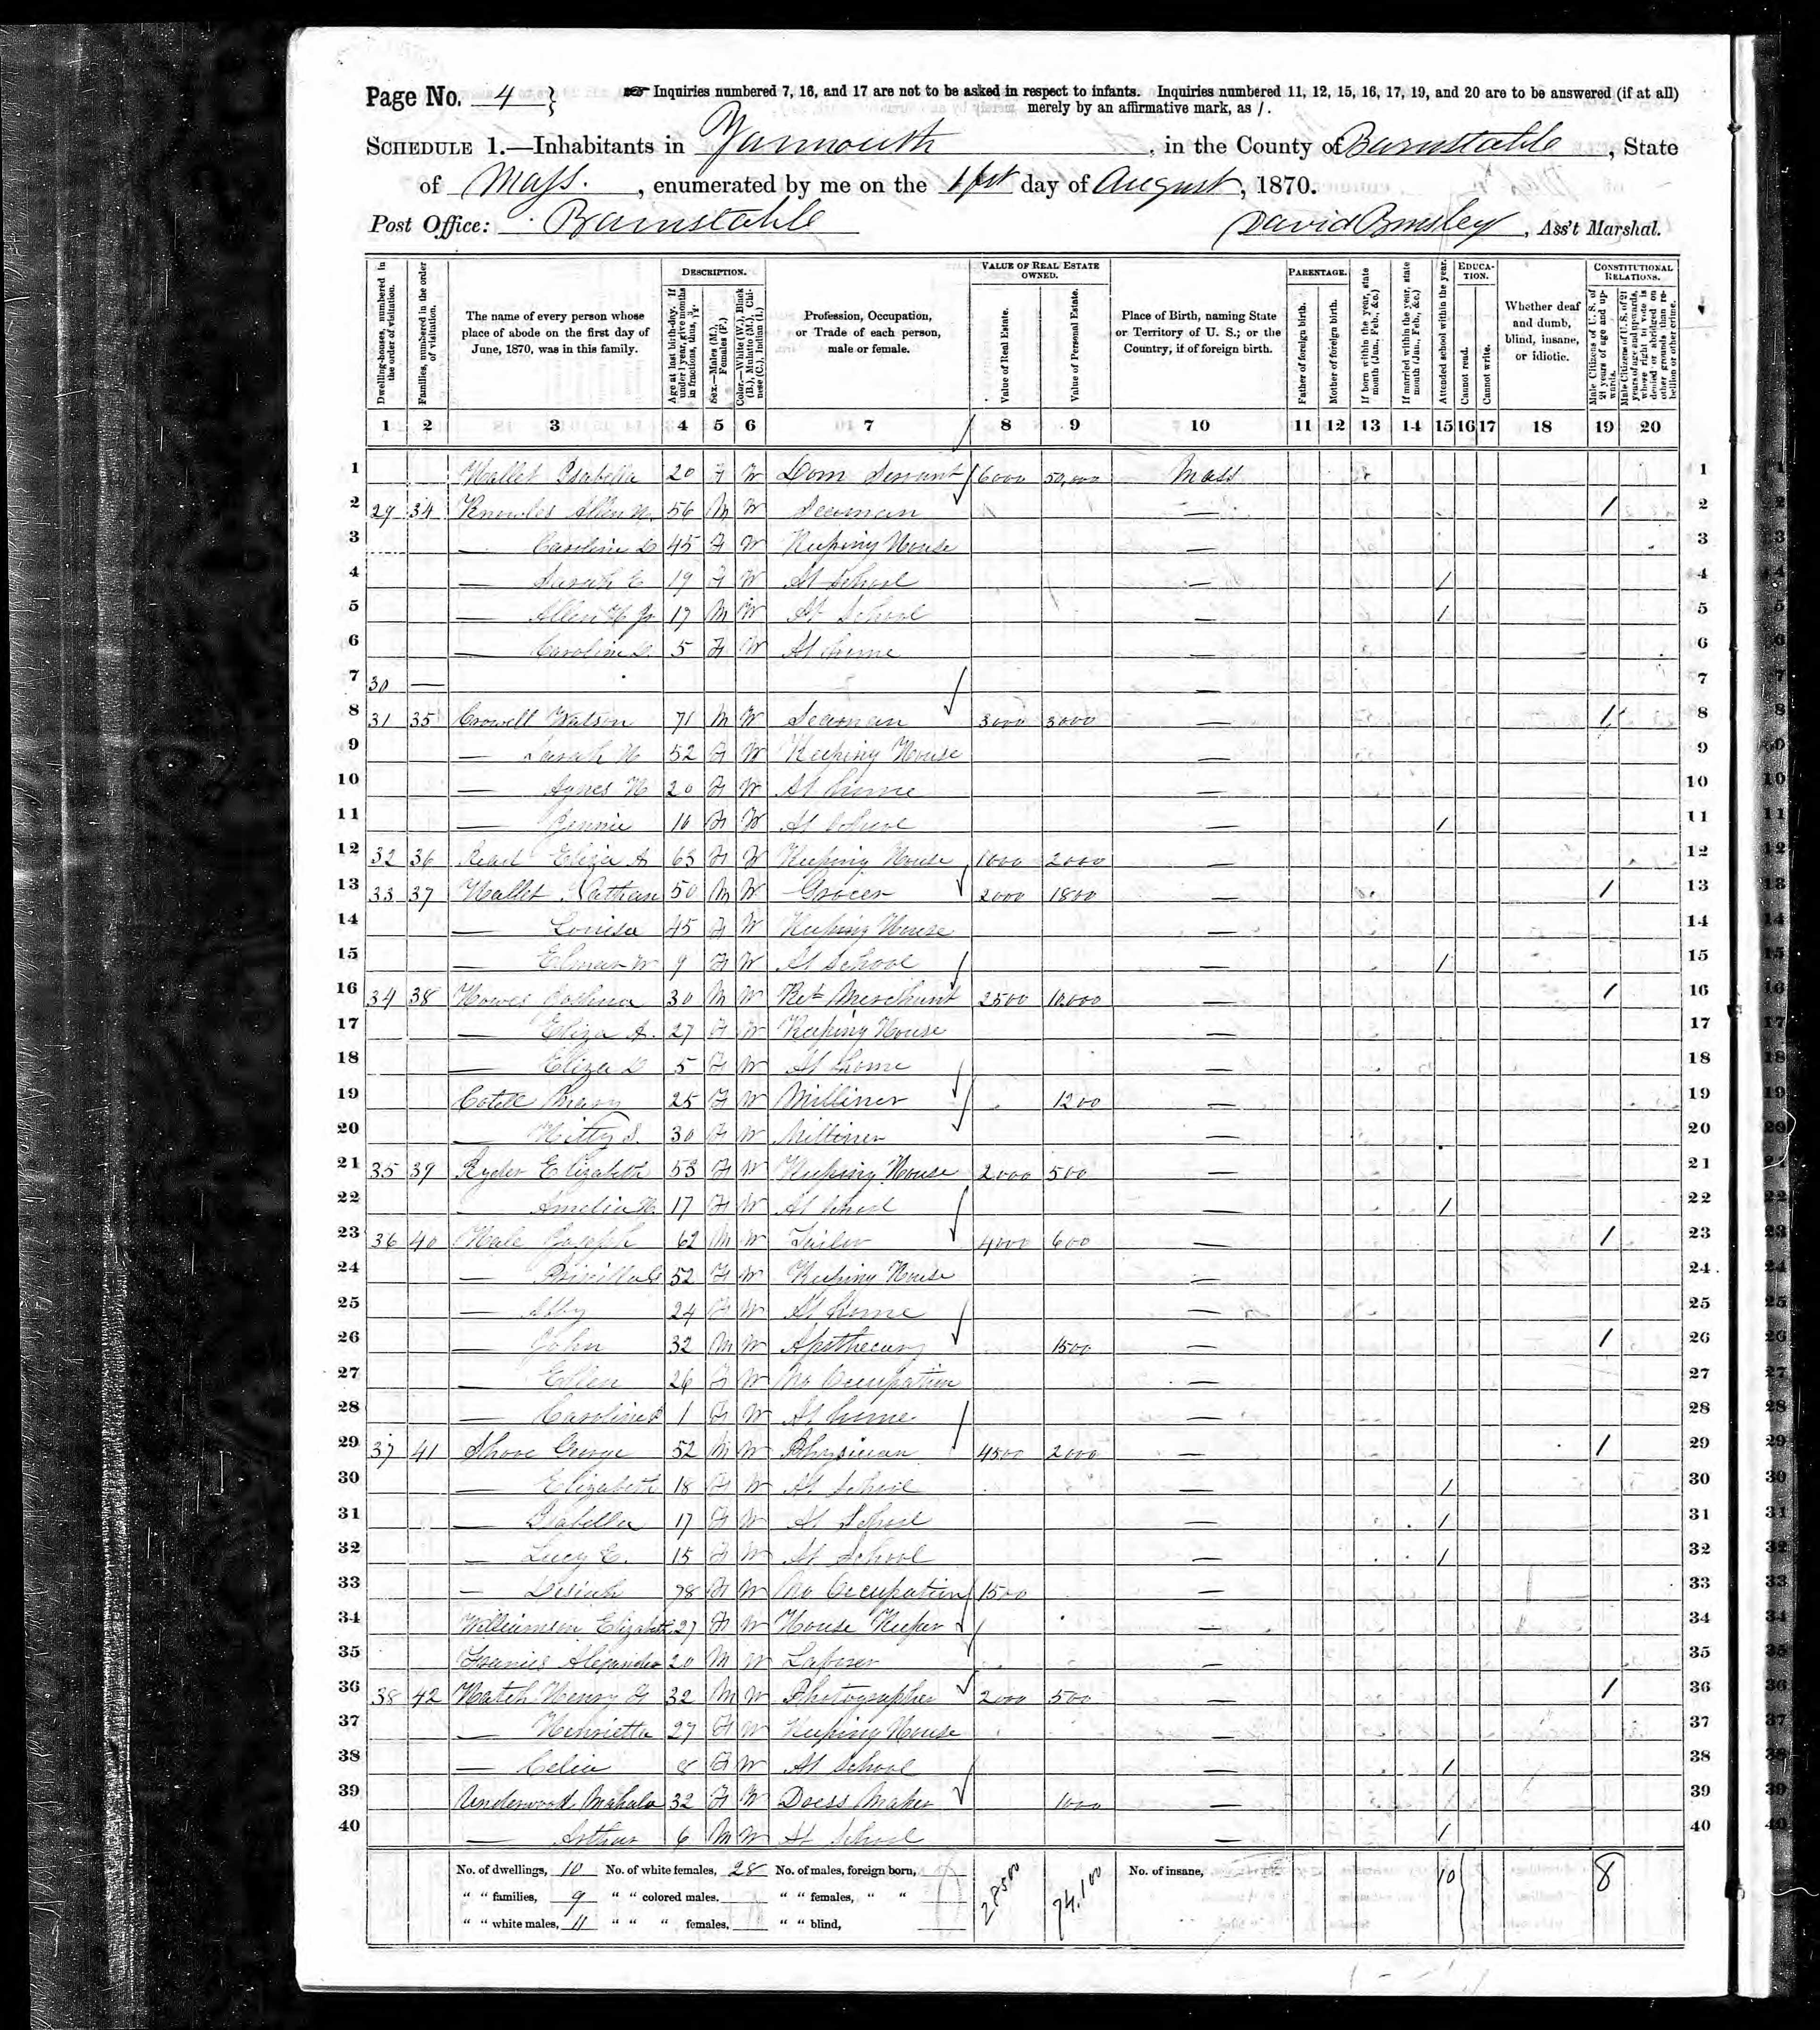 Page No. 4 } Inquiries numbered 7, 16, and 17 are not to be asked in respect to infants. Inquiries numbered 11, 12, 15, 16, 17, 19, and 20 are to be answered (if at all)
merely by an affirmative mark, as /.
SCHEDULE 1.—Inhabitants in Yarmouth, in the County of Barnstable, State
of Mass., enumerated by me on the 1st day of August, 1870.
Post Office: Barnstable David Bursley, Ass't Marshal.
Dwelling-houses, numbered in the order of visitation.
Families, numbered in the order of visitation.
The name of every person whose place of abode on the first day of June, 1870, was in this family.
DESCRIPTION.
Age at last birth-day. If under 1 year, give months in fractions, thus, 3/12.
Sex.—Males (M.), Females (F.)
Color.—White (W.), Black (B.), Mulatto (M.), Chinese (C.), Indian (I.)
Profession, Occupation, or Trade of each person, male or female.
VALUE OF REAL ESTATE OWNED.
Value of Real Estate.
Value of Personal Estate.
Place of Birth, naming State or Territory of U. S.; or the Country, if of foreign birth.
PARENTAGE.
Father of foreign birth.
Mother of foreign birth.
If born within the year, state month (Jan., Feb., &c.)
If married within the year, state month (Jan., Feb., &c.)
Attended school within the year.
EDUCATION.
Cannot read.
Cannot write.
Whether deaf and dumb, blind, insane, or idiotic.
CONSTITUTIONAL RELATIONS.
Male Citizens of U. S. of 21 years of age and upwards.
Male Citizens of U. S. of 21 years of age and upwards, whose right to vote is denied or abridged on other grounds than rebellion or other crime.
1 2 3 4 5 6 7 8 9 10 11 12 13 14 15 16 17 18 19 20
1 Hallet Isabella 20 F W Dom Servant 6000 50,000 Mass 1
2 29 34 Knowles Allen H. 56 M W Seaman — / 2
3 — Caroline 45 F W Keeping House — 3
4 — Sarah E 19 F W At School — / 4
5 — Allen H Jr 17 M W At School — / 5
6 — Caroline 5 F W At home — 6
7 30 — — 7
8 31 35 Crowell Watson 71 M W Seaman 3000 3000 — / 8
9 — Sarah H 52 F W Keeping House — 9
10 — Agnes H 20 F W At home — 10
11 — Jennie F W At School — / 11
12 32 36 Eliza A 63 F W Keeping House 1000 2000 — 12
13 33 37 Hallet Nathan 50 M W Grocer 2000 1800 — / 13
14 — Louisa 45 F W Keeping House — 14
15 — W 9 F W At School — / 15
16 34 38 Howes Joshua 30 M W Ret Merchant 2500 — / 16
17 — Eliza A. 27 F W Keeping House — 17
18 — Eliza 5 F W At home — 18
19 25 F W Milliner 1200 — 19
20 — Hitty S. 30 F W Milliner — 20
21 35 39 Ryder Elizabeth 53 F W Keeping House 2000 500 — 21
22 Amelia H 17 F W At School — / 22
23 36 40 Hale Joseph 62 M W Tailor 4000 600 — / 23
24 — 52 F W Keeping House — 24
25 — Abby 24 F W At home — 25
26 — John 32 M W Apothecary 1500 — / 26
27 — Ellen 26 F W No Occupation — 27
28 — Caroline 1 F W At home — 28
29 37 41 Shove George 52 M W Physician 4500 2000 — / 29
30 — Elizabeth 18 F W At School — / 30
31 — Isabella 17 F W At School — / 31
32 — Lucy E. 15 F W At School — / 32
33 — 78 F W No Occupation 1500 — 33
34 Williamson Elizabeth 27 F W House Keeper — 34
35 Alexander 20 M W Laborer — 35
36 38 42 Hatch Henry G 32 M W Photographer 2000 500 — / 36
37 — Henrietta 27 F W Keeping House — 37
38 — Celia 8 F W At School — / 38
39 Underwood Mahala 32 F W Dress Maker 1000 — 39
40 — Arthur 6 M W At School — / 40
No. of dwellings, 10 No. of white females, 28 No. of males, foreign born, 28500 74,100 No. of insane, 10 8
" " families, 9 " " colored males, " " females, " "
" " white males, 11 " " " females, " " blind,